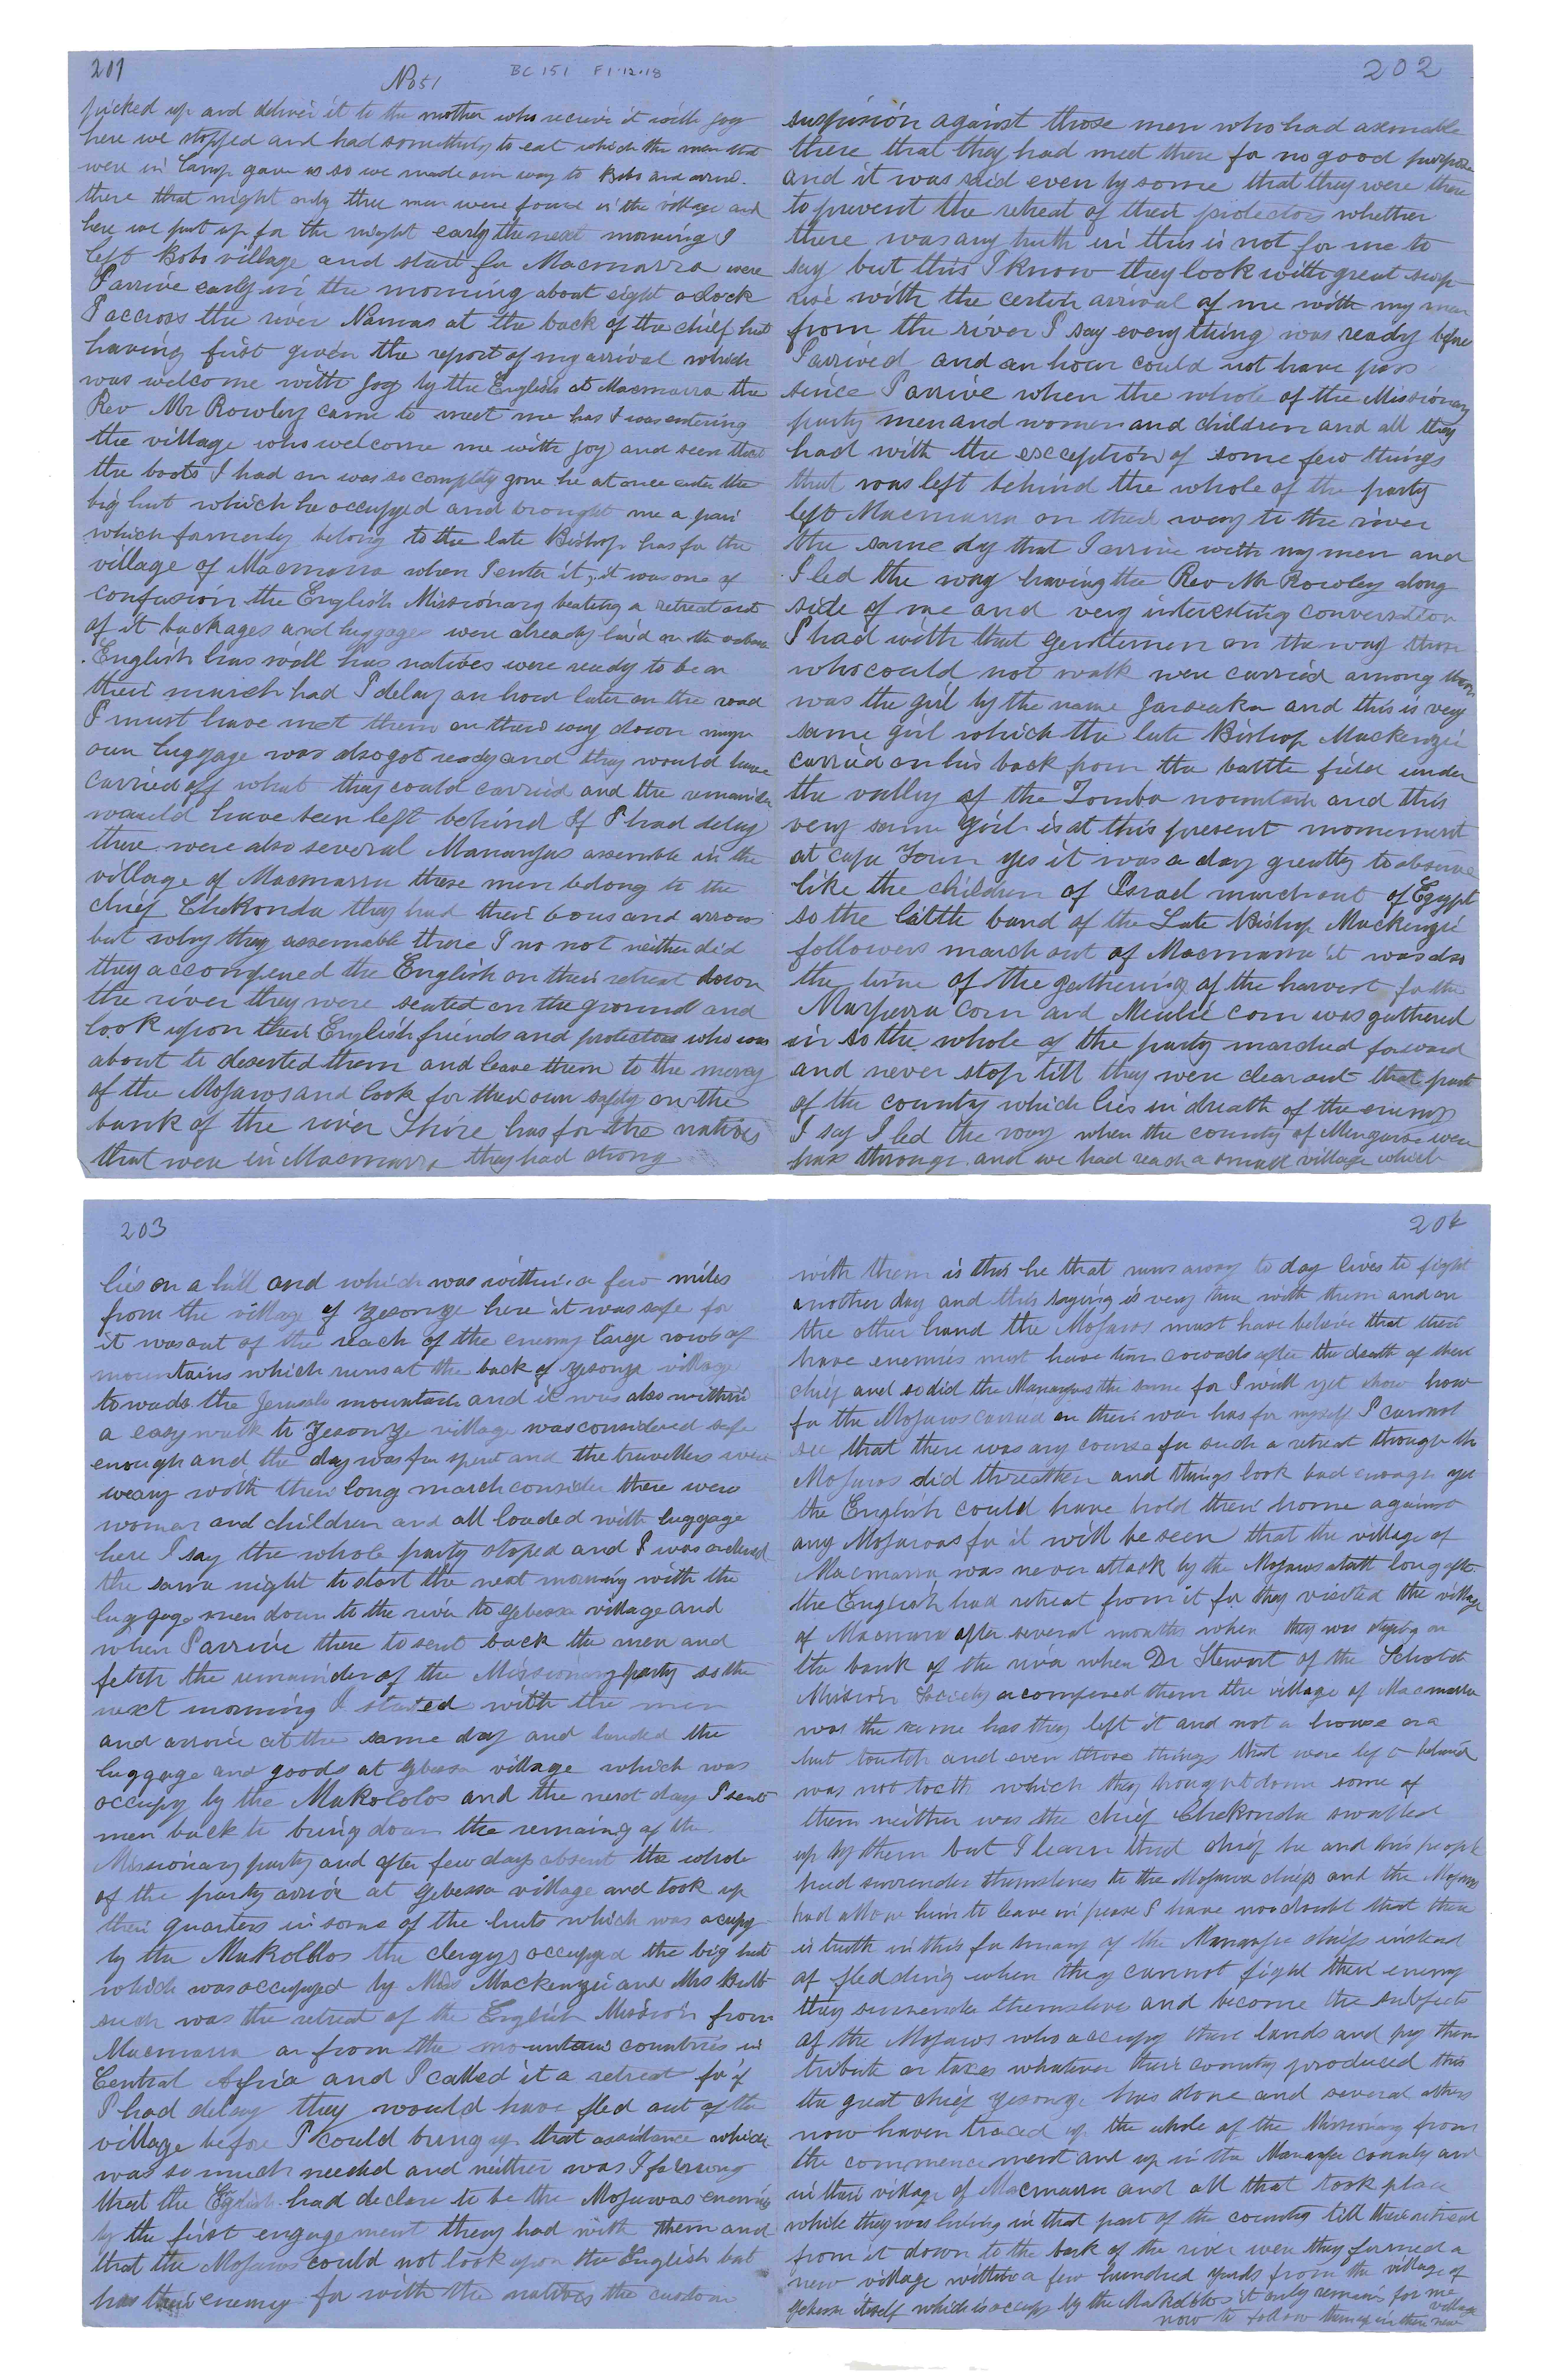 201
No 51
BC 151 F1.12.18
picked up and deliver it to the mother who recieve it with joy
here we stopped and had something to eat which the men that
were in Camp gave us so we made our way to Bobo and arrive
there that night only three men were found in the village and
here we put up for the night early the next morning I
left Bobo village and start for Macmarra were
I arrive early in the morning about eight oclock
I accross the river Namas at the back of the chief hut
having first given the report of my arrival which
was welcome with joy by the English at Macmarra the
Rev Mr Rowley came to meet me has I was entering
the village who welcome me with joy and seen that
the boots I had on was so completly gone he at once enter the
big hut which he occupyed and brought me a pair
which formerly belong to the late Bishop has for the
village of Macmarra when I enter it, it was one of
confusion the English Missionary beating a retreat out
of it backages and luggages were already laid on the
English has well has natives were ready to be on
their march had I delay an hour later on the road
I must have met them on there way down my
own luggage was also got ready and they would have
carried off what they could carried and the remainder
would have been left behind If I had delay
there were also several Manangas assemble in the
village of Macmarra these men belong to the
chief Chekonda they had their bows and arrows
but why they assemable there I no not neither did
they accompened the English on their retreat down
the river they were seated on the ground and
look upon their English friends and protectors who was
about to deserted them and leave them to the mercy
of the Mofawos and look for their own safety on the
bank of the river Shire has for the natives
that were in Macmarra they had strong
202
suspision against those men who had asemable
there that they had meet there for no good purpose
and it was said even by some that they were there
to prevent the retreat of their protectors whether
there was any truth in this is not for me to
say but this I know they look with great surp
rise with the certin arrival of me with my men
from the river I say every thing was ready before
I arrived and an hour could not have pass
since I arrive when the whole of the Missionary
party men and women and children and all they
had with the exception of some few things
that was left behind the whole of the party
left Macmarra on their way to the river
the same dy that I arrive with my men and
I led the way having the Rev Mr Rowley along
side of me and very interesting conversation
I had with that gentlemen on the way those
who could not walk were carried among them
was the girl by the name and this is very
same girl which the late Bishop Mackenzie
carried on his back from the battle field under
the valley of the Zomba mountain and this
very same girl is at this present momement
at cape Town yes it was a day greatly to abserve
like the children of Israel march out of Egypt
so the little band of the Late Bishop Mackenzie
followers march out of Macmarra it was also
the time of the gathering of the harvest for the
Marpurra Corn and Meulie corn was gathered
in so the whole of the party marched forward
and never stop till they were clear out that part
of the county which lies in dreath of the enemy
I say I led the way when the county of were
pass through and we had reach a small village which
203
lies on a hill and which was within a few miles
from the village of Zesonze here it was safe for
it was out of the reach of the enemy large rows of
mountains which runs at the back of Zesonze village
towads the mountain and it was also within
a easy walk to Zesonze village was considered safe
enough and the day was far spent and the travellers were
weary with their long march consider there were
woman and children and all loaded with luggage
here I say the whole party stoped and I was ordered
the same night to start the next morning with the
luggage men down to the river to Gebessa village and
when I arrive there to sent back the men and
fetch the remainder of the Missionary party so the
next morning I started with the men
and arrive at the same day and landed the
luggage and goods at Gbessa village which was
occupy by the Makololos and the next day I sent
men back to bring down the remaing of the
Missionary party and after few days absent the whole
of the party arrive at Gebessa village and took up
their quarters in some of the huts which was ocupy
by the Makolklos the clergys occupyed the big hut
which was occupyed by Miss Mackenzie and Mrs
such was the retreat of the English Mission from
Macmarra or from the mountain countries in
Central Africa and I called it a retreat for if
I had delay they would have fled out of the
village before I could bring up that assistance which
was so much needed and neither was I far wrong
that the English had declare to be the Mofawas enemies
by the first engagement they had with them and
that the Mofawos could not look upon the English but
has their enemy for with the natives the custom
204
with them is this he that runs away to day lives to fight
another day and this saying is very true with them and on
the other hand the Mofawos must have believe that their
have enemies must have turn cowads after the death of their
chief and so did the Manangas the same for I will yet show how
far the Mofawos carried on their war has for myself I cannot
see that there was any course for such a retreat through the
Mofawos did threathen and things look bad enough yet
the English could have hold their home against
any Mofawoas for it will be seen that the village of
Macmarra was never attack by the Mofawos untill long after
the English had retreat from it for they visited the village
of Macmara after several months when they was staying on
the bank of the river when Dr Stewart of the Schotch
Mission Society acompened them the village of Macmarra
was the same has they left it and not a house or a
hut toutch and even those things that were left behind
was not toctth which they brought down some of
them neither was the chief Chekonda swalled
up by them but I learn that chief he and his people
had surrender themselves to the Mofawa chiefs and the Mofawos
had allow him to leave in peace I have no doubt that there
is truth in this for many of the Mananga chiefs instead
of fledding when they cannot fight their enemy
they surrender themselves and become the subjects
of the Mofawos who accupy there lands and pay them
tribute or taxes whatever their country produced this
the great chief Zesonze has done and several others
now haven traced up the whole of the Missionary from
the commencement and up in the Mananga county and
in their village of Macmarra and all that took place
while they was living in that part of the country till their retreat
from it down to the bank of the river were they formed a
new village within a few hundred yards from the village of
Gebessa itself which is occupy by the Makololos it only remains for me
now to follow them up in there new village